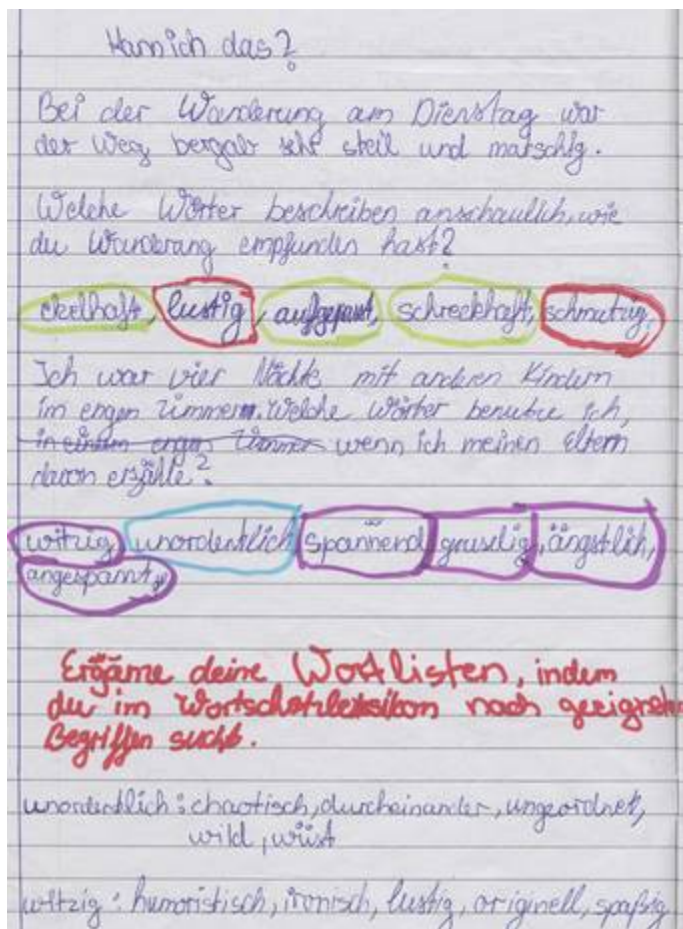 Kann ich das?
Bei der Wanderung am Dienstag war
der Weg bergab sehr steil und matschig.
Welche Wörter beschreiben anschaulich, wie
du Wanderung empfunden hast?
ekelhaft, lustig, aufgepasst, schreckhaft, schmutzig,
Ich war vier Nächte mit anderen Kindern
im engen Zimmern. Welche Wörter benutze ich,
in einem engen Zimmer wenn ich meinen Eltern
davon erzähle?
witzig, unordentlich, spannend, gruselig, ängstlich,
angespannt,
Ergänze deine Wortlisten, indem
du im Wortschatzlexikon nach geeigneten
Begriffen suchst.
unordentlich: chaotisch, durcheinander, ungeordnet,
wild, wüst
witzig: humoristisch, ironisch, lustig, originell, spaßig